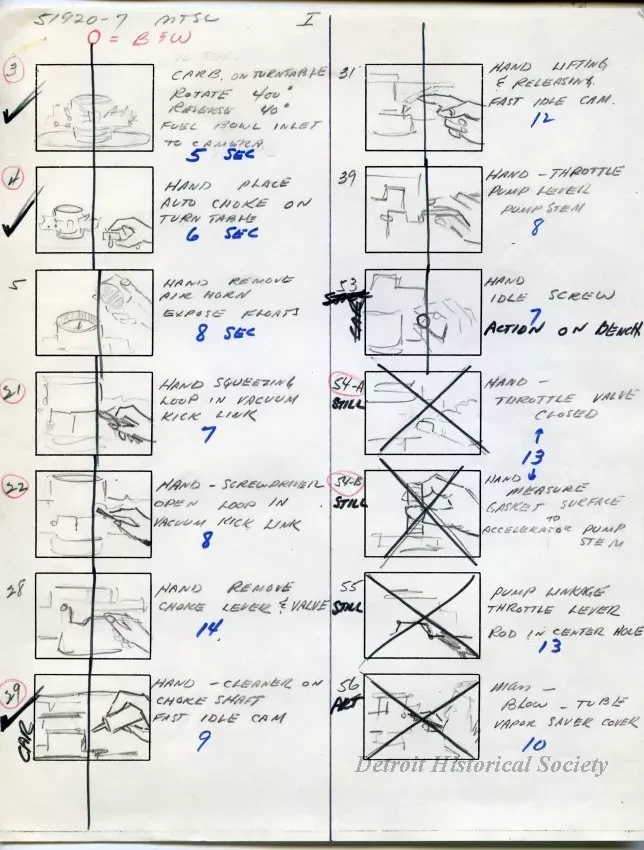 51920-7 MTSC I
O = B & W
3
CARB. ON TURNTABLE
ROTATE 400°
REVERSE 40°
FUEL BOWL INLET
TO CAMERA
5 SEC
4
HAND PLACE
AUTO CHOKE ON
TURN TABLE
6 SEC
5
HAND REMOVE
AIR HORN
EXPOSE FLOATS
8 SEC
21
HAND SQUEEZING
LOOP IN VACUUM
KICK LINK
7
22
HAND - SCREWDRIVER
OPEN LOOP IN
VACUUM KICK LINK
8
28
HAND REMOVE
CHOKE LEVER & VALVE
14
29
CAR
HAND - CLEANER ON
CHOKE SHAFT
FAST IDLE CAM
9
31
HAND LIFTING
& RELEASING
FAST IDLE CAM.
12
39
HAND - THROTTLE
PUMP LEVER
PUMP STEM
8
53
HAND
IDLE SCREW
7
ACTION ON BENCH
54-A
STILL
HAND -
THROTTLE VALVE
CLOSED
13
54-B
STILL
HAND
MEASURE
GASKET SURFACE
TO
ACCELERATOR PUMP
STEM
55
STILL
PUMP LINKAGE
THROTTLE LEVER
ROD IN CENTER HOLE
13
56
ART
MAN -
BLOW - TUBE
VAPOR SAVER COVER
10
Detroit Historical Society